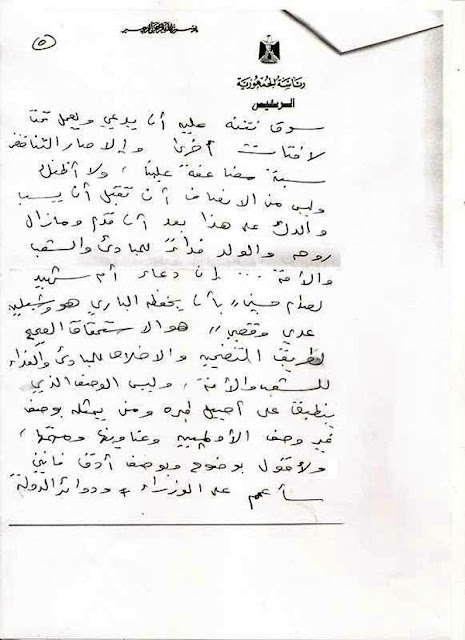 بسم الله الرحمن الرحيم
(٥)
رئاسة الجمهورية
الرئيس
سوف ننتبه عليه أن يدعي ويعمل
لافتات أخرى وإلا صار التناقض
سبة مضاعفة علينا، ولا أظنك
وليس من الانصاف أن تقبل أن يسب
والدك على هذا بعد أن قدم ومازال
روحه والولد فداءً للمبادئ والشعب
والأمة .... إن دعاء أم شهيد
لصدام حسين بأن يحفظه الباري هو وشبليه
عدي وقصي، هو الاستحقاق الصحيح
لطريق التضحية والاخلاص للمبادئ والفداء
للشعب والأمة، وليس الوصف الذي
ينطبق على أجير ومن يمثله بوصف
غير وصف الأولمبية وعناوينها
ولأقول بوضوح وبوصف أدق فانني
سأعمم على الوزراء ودوائر الدولة